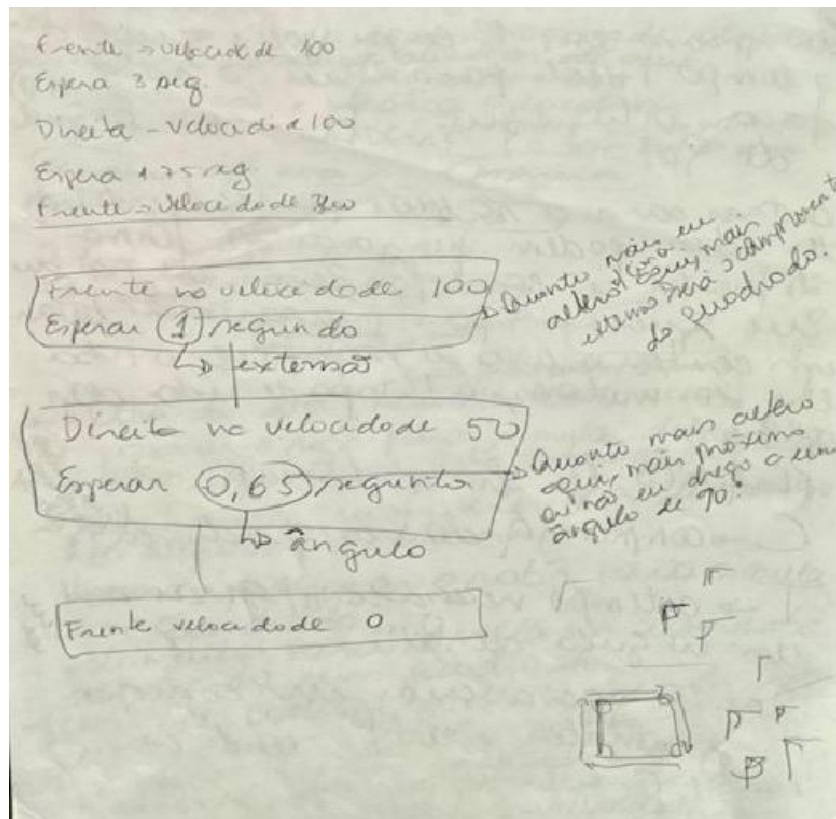 Frente → velocidade 100
Espera 3 seg.
Direita - velocidade 100
Espera 1.75 seg
Frente → velocidade
Frente na velocidade 100
Esperar 1 segundo
↳ extensão
→ Quanto mais eu
altero aqui, mais
extenso será o comprimento
do quadrado.
Direita na velocidade 50
Esperar 0,65 segundo
↳ ângulo
→ Quanto mais altero
aqui, mais próximo
ou não eu chego a um
ângulo de 90°
Frente velocidade 0